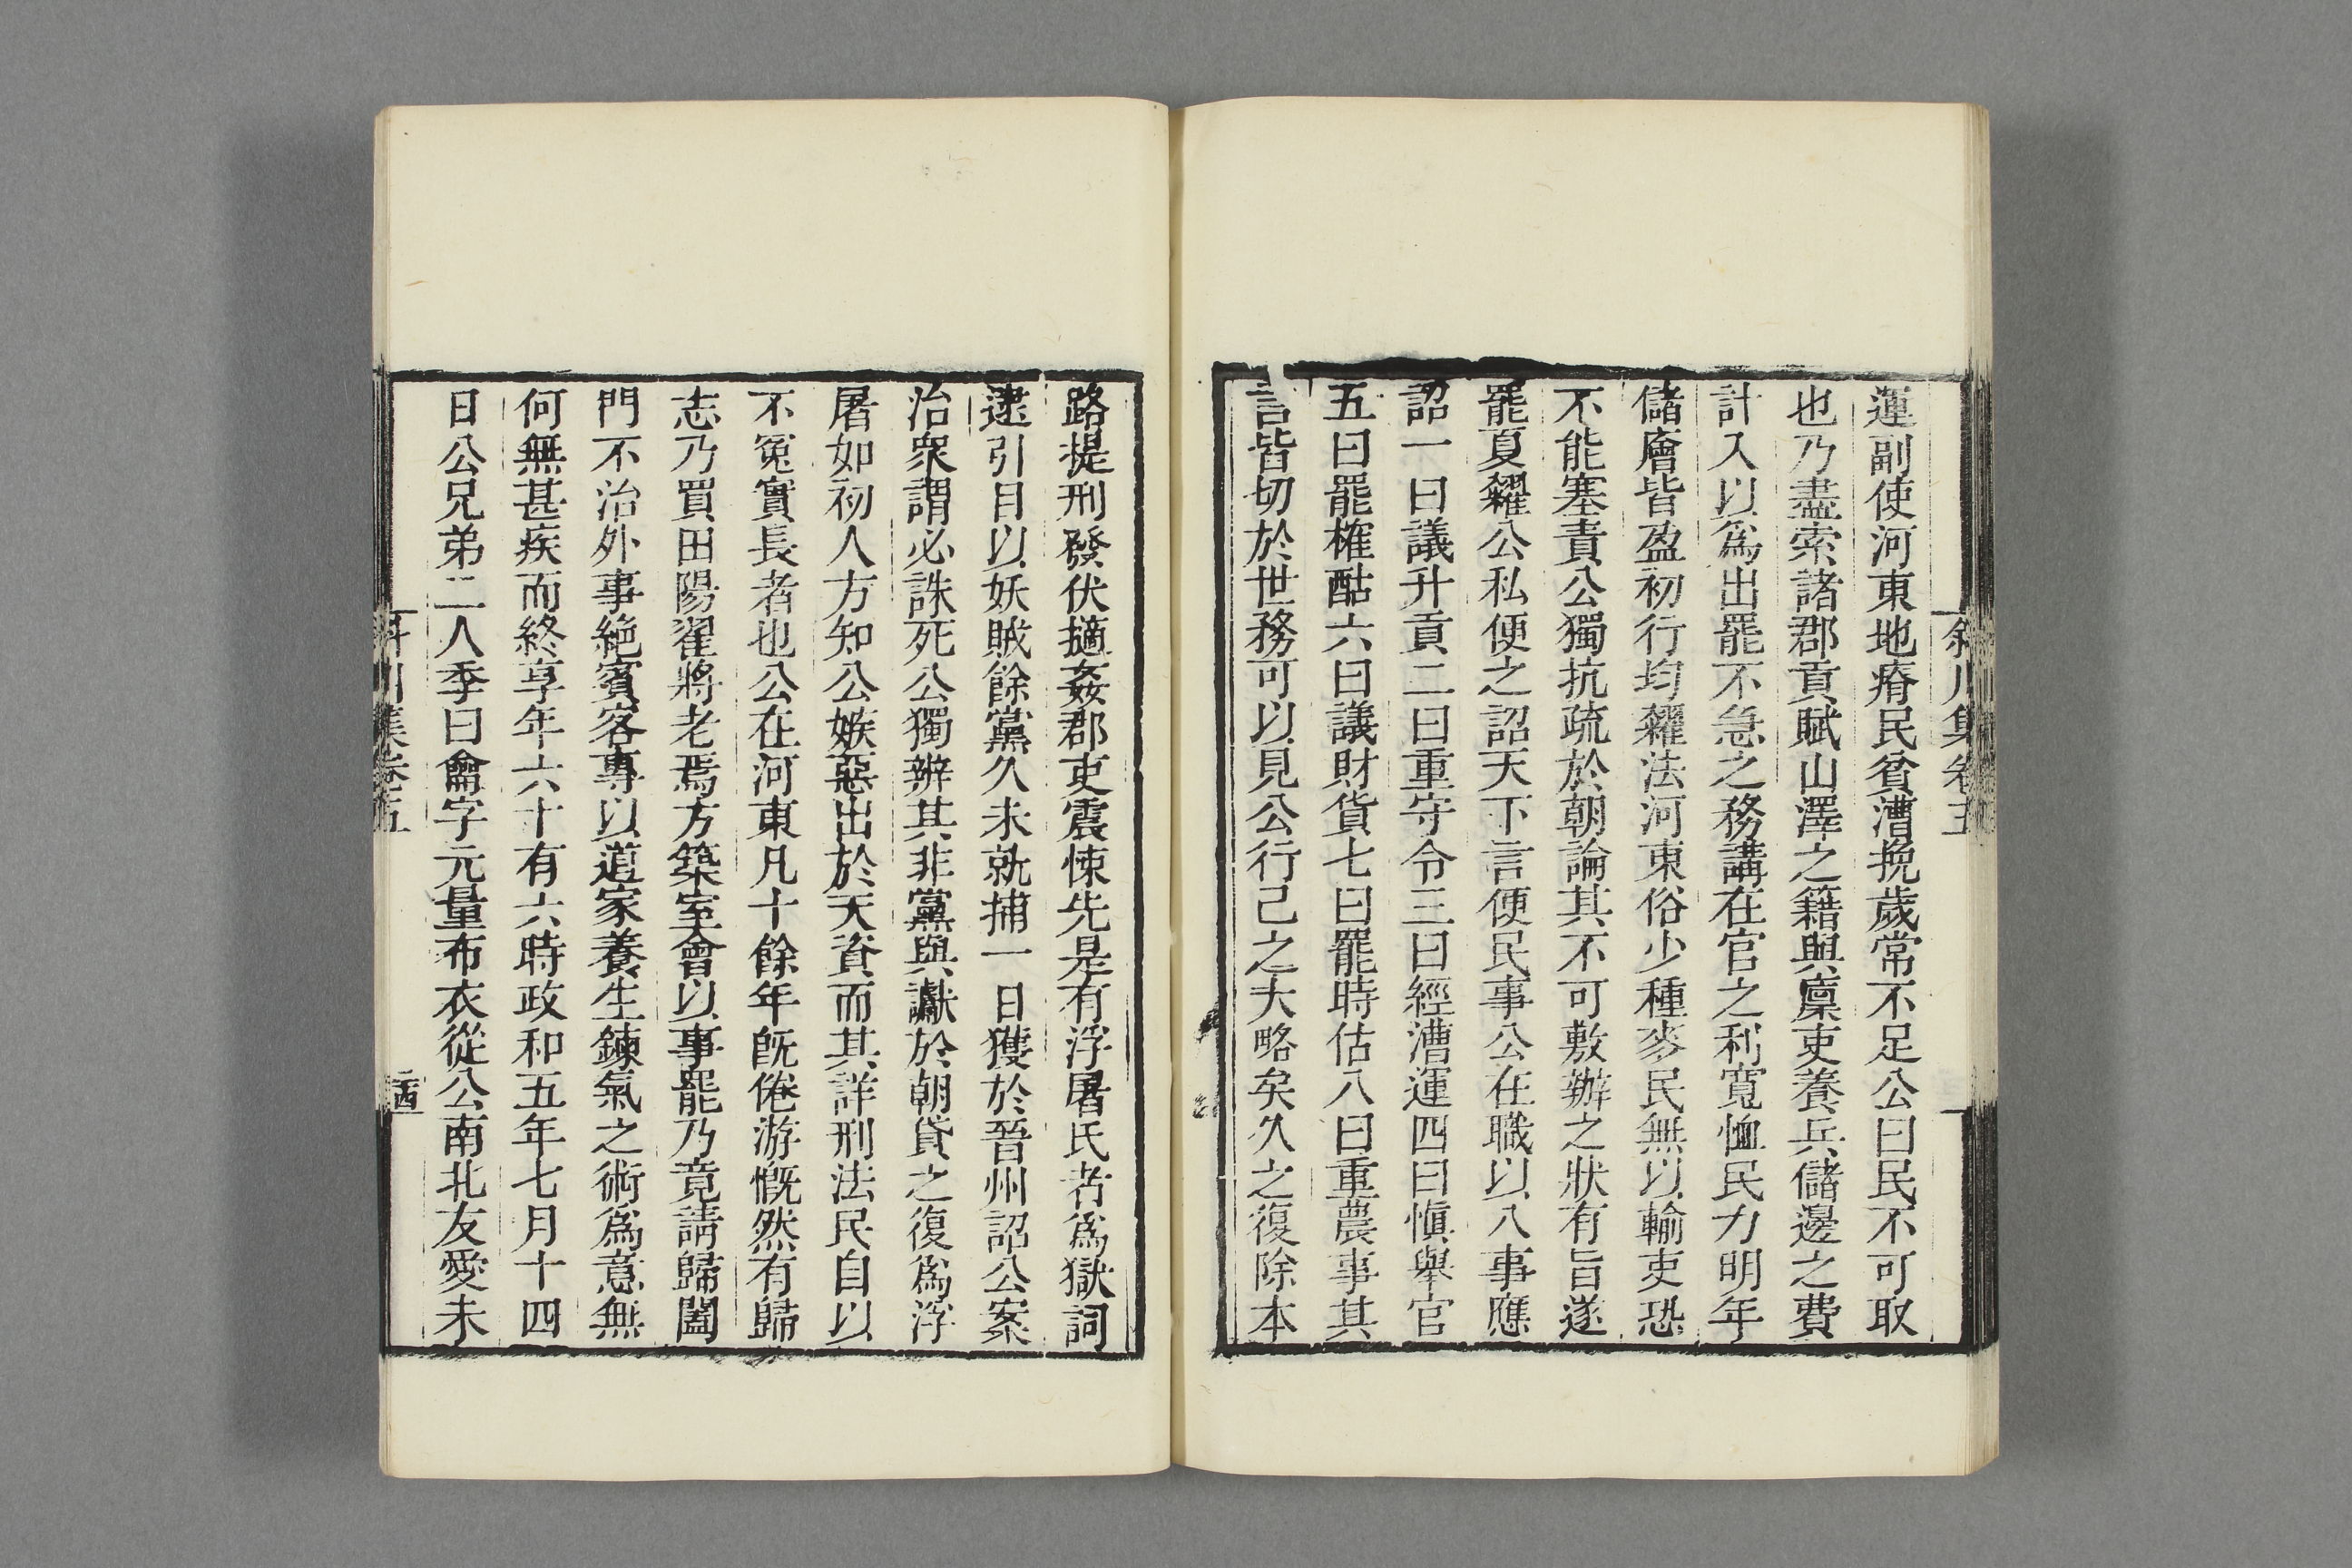 斜川集卷五
運副使河東地瘠民貧漕挽歲常不足公曰民不可取
也乃盡索諸郡貢賦山澤之籍與廩吏養兵儲邊之費
計入以爲出罷不急之務講在官之利寬恤民力明年
儲廥皆盈初行均糴法河東俗少種麥民無以輸吏恐
不能塞責公獨抗疏於朝論其不可敷辦之狀有旨遂
罷夏糴公私便之詔天下言便民事公在職以八事應
詔一曰議升貢二曰重守令三曰經漕運四曰愼舉官
五曰罷榷酤六曰議財貨七曰罷時估八曰重農事其
言皆切於世務可以見公行己之大略矣久之復除本
路提刑發伏擿姦郡吏震悚先是有浮屠氏者爲獄詞
逮引目以妖賊餘黨久未就捕一日獲於晉州詔公案
治衆謂必誅死公獨辨其非黨與讞於朝貸之復爲浮
屠如初人方知公嫉惡出於天資而其詳刑法民自以
不冤實長者也公在河東凡十餘年旣倦游慨然有歸
志乃買田陽翟將老焉方築室會以事罷乃竟請歸闔
門不治外事絶賓客專以道家養生鍊氣之術爲意無
何無甚疾而終享年六十有六時政和五年七月十四
日公兄弟二人季曰龠字元量布衣從公南北友愛未
斜川集卷五